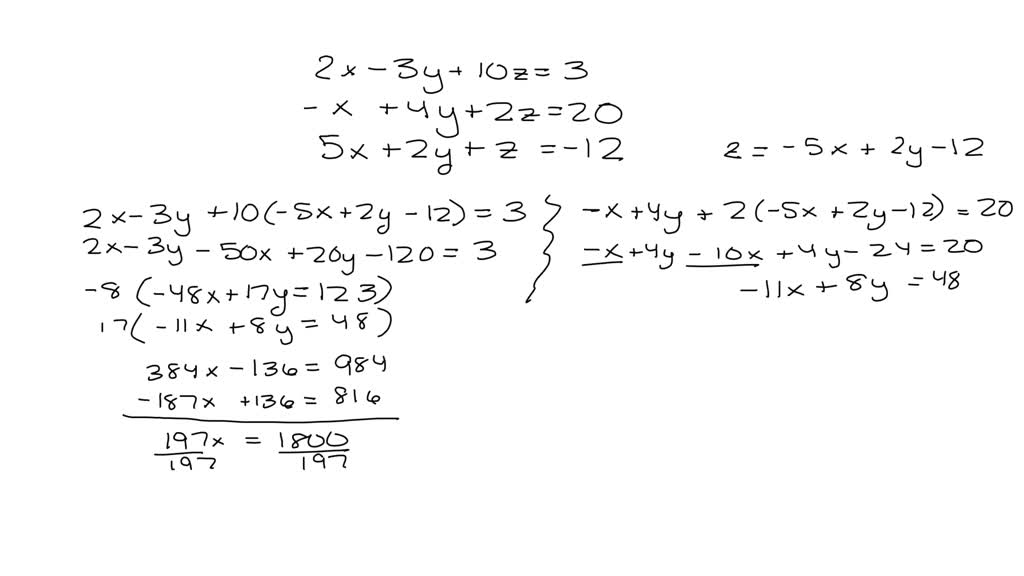 2x - 3y + 10z = 3
- x + 4y + 2z = 20
5x + 2y + z = -12
z = - 5x + 2y - 12
2x - 3y + 10(-5x + 2y - 12) = 3
2x - 3y - 50x + 20y - 120 = 3
-8 (-48x + 17y = 123)
17( -11x + 8y = 48 )
384x - 136 = 984
-187x + 136 = 816
197x = 1800
197 197
-x + 4y + 2(-5x + 2y - 12) = 20
-x + 4y - 10x + 4y - 24 = 20
-11x + 8y = 48